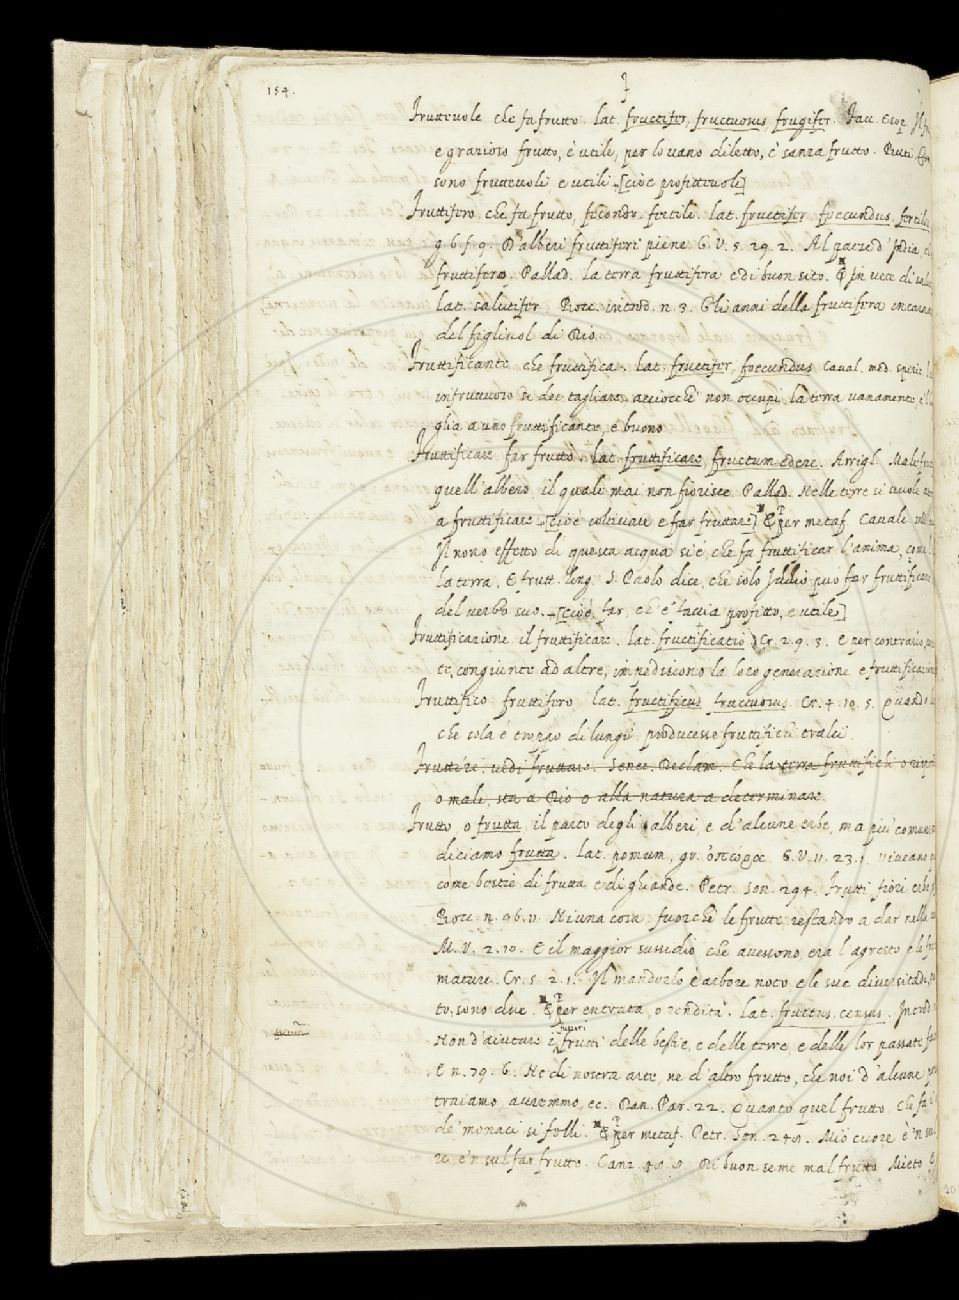 154. F
Fruttevole che fa frutto. Lat. fructifer, fructuosus frugifer. Fav. Esop. Il
e grazioso frutto, è utile, per lo vano diletto, è sanza frutto. Buti.
sono fruttevoli e utili [cioè profittevoli]
Fruttifero che fa frutto, fecondo, fertile. Lat. fructifer, foecundus, fertilis
9. 6. f. 9. D'alberi fruttiferi piene G. V. 5. 29. 2. Al paese d'India
fruttifero. Pallad. La terra fruttifera e di buon sito. & In vece di
lat. salutifer. Bocc. introd. n. 3. Gli anni della fruttifera incarna
del figliuol di Dio.
Fruttificante che fruttifica. Lat. fructifer, foecundus Caval. med.
infruttuoso si dee tagliare, acciocchè non occupi la terra vanamente,
glia a uno fruttificante, e buono
Fruttificare far frutto. Lat. fruttificare, fructum edere. Arrigh. Male
quell'albero, il quale mai non fiorisce Pallad. Nelle terre si vuole
a fruttificare [cioè coltivare e far fruttare] & per metaf. Caval.
Il nono effetto di questa acqua si è, che fa fruttificar l'anima, come
la terra. E frutt. ling. S. Paolo dice, che solo Iddio può far fruttificare
del verbo suo. [cioè far, ch'e' faccia profitto, e utile]
Fruttificazione il fruttificare. Lat. fructificatio Cr. 2. 9. 3. E per contrario,
te, congiunte ad altre, impediscono la loro generazione e fruttificazione
Fruttifico fruttifero Lat. fructificus fructuosus Cr. 4. 10. 5. Quando
che cola è troppo di lungi, producesse fruttifichi tralci.
Fruttire. vedi fruttare. Senec. Declam. Che la terra fruttifichi o
o male, sta a Dio o alla natura a determinare
Frutto, o frutta il parto degli alberi, e d'alcune erbe, ma più comune
diciamo frutta. Lat. pomum, gr. ὀπώρα. G. V. 11. 23. 1. viveano
come bestie di frutta e di ghiande. Petr. Son. 294. Frutti fiori erbe
Bocc. n. 96. 11. Niuna cosa fuorchè le frutte restando a dar nella
M. V. 2. 10. E il maggior sussidio che avessono, era l'agresto e le
mature. Cr. 5. 2. 1. Il mandorlo è arbore noto e le sue diversitadi,
to, sono due. & per entrata, o rendita. Lat. fructus, census. Introd.
Non d'aiutare i futuri frutti delle bestie, e delle terre, e delle lor passate
E n. 79. 6. Ne di nostra arte, ne d'altro frutto, che noi d'alcune
traiamo, avremmo, ec. Dan. Par. 22. Quanto quel frutto che fa
de' monaci si folli. & per metaf. Petr. Son. 248. Mio cuore
e'n sul far frutto. Canz. 48. 8. Di buon seme mal frutto Mieto